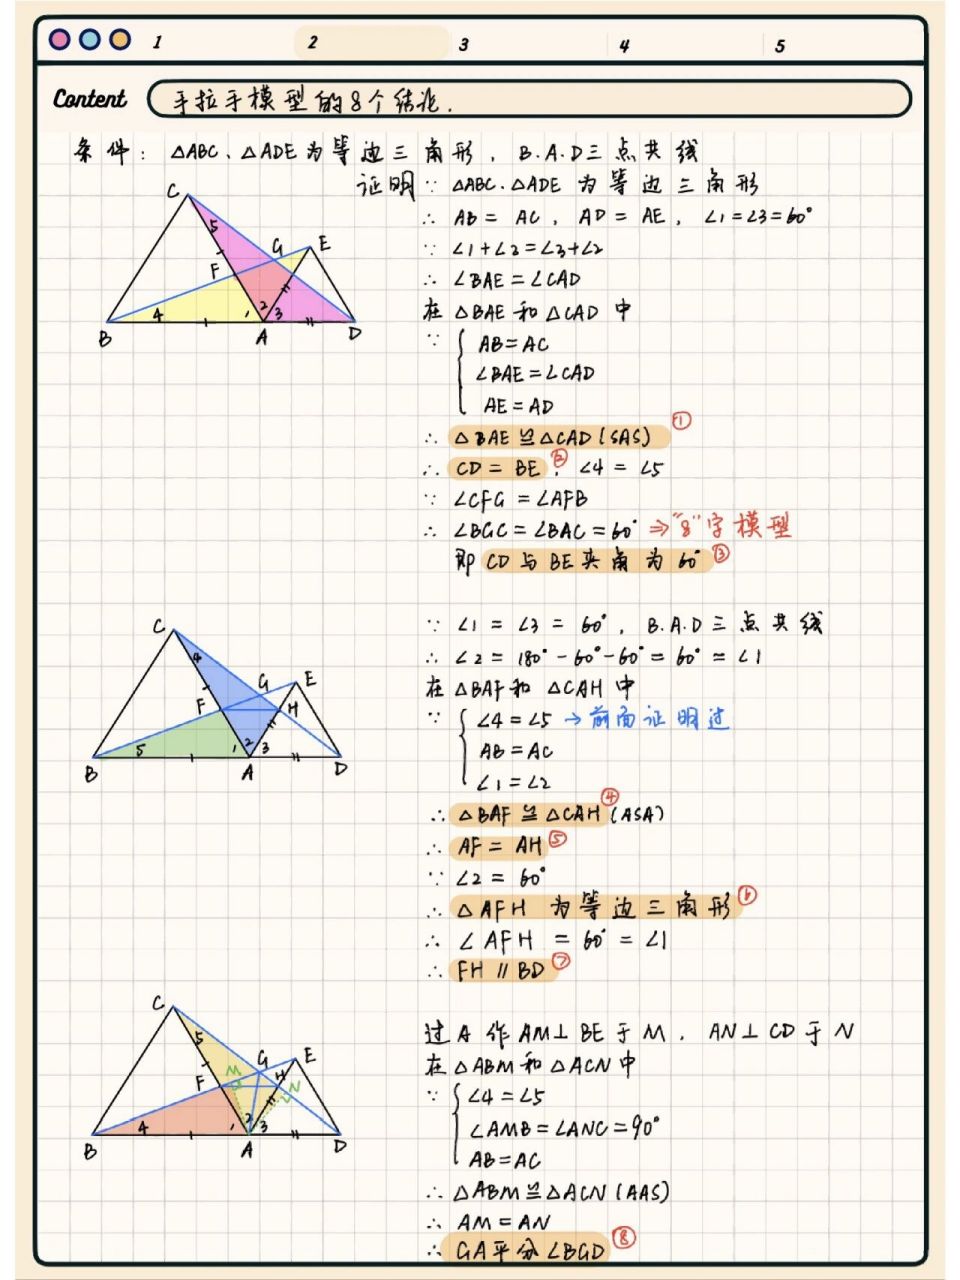 1 2 3 4 5
Content 手拉手模型的8个结论.
条件: △ABC、△ADE为等边三角形, B.A.D三点共线
证明∵ △ABC.△ADE 为等边三角形
∴ AB = AC, AD = AE, ∠1=∠3=60°
∵ ∠1+∠2=∠3+∠2
∴ ∠BAE=∠CAD
在△BAE和△CAD中
∵ { AB=AC
∠BAE=∠CAD
AE=AD
∴ △BAE≌△CAD(SAS) ①
∴ CD = BE ②, ∠4 = ∠5
∵ ∠CFG=∠AFB
∴ ∠BGC=∠BAC=60° ⇒"8"字模型
即 CD与BE夹角为60° ③
C
5
G
E
F
4
1
2
3
B
A
D
∵ ∠1 = ∠3 = 60°, B.A.D三点共线
∴ ∠2 = 180°-60°-60°=60°=∠1
在△BAF和△CAH中
∵ { ∠4=∠5 →前面证明过
AB=AC
∠1=∠2
∴ △BAF≌△CAH(ASA) ④
∴ AF = AH ⑤
∵ ∠2 = 60°
∴ △AFH 为等边三角形 ⑥
∴ ∠AFH = 60°=∠1
∴ FH∥BD ⑦
C
4
G
E
F
H
5
1
2
3
B
A
D
过A作AM⊥BE于M, AN⊥CD于N
在△ABM和△ACN中
∵ { ∠4=∠5
∠AMB=∠ANC=90°
AB=AC
∴ △ABM≌△ACN(AAS)
∴ AM=AN
∴ GA平分∠BGD ⑧
C
5
G
E
M
H
F
N
4
1
2
3
B
A
D